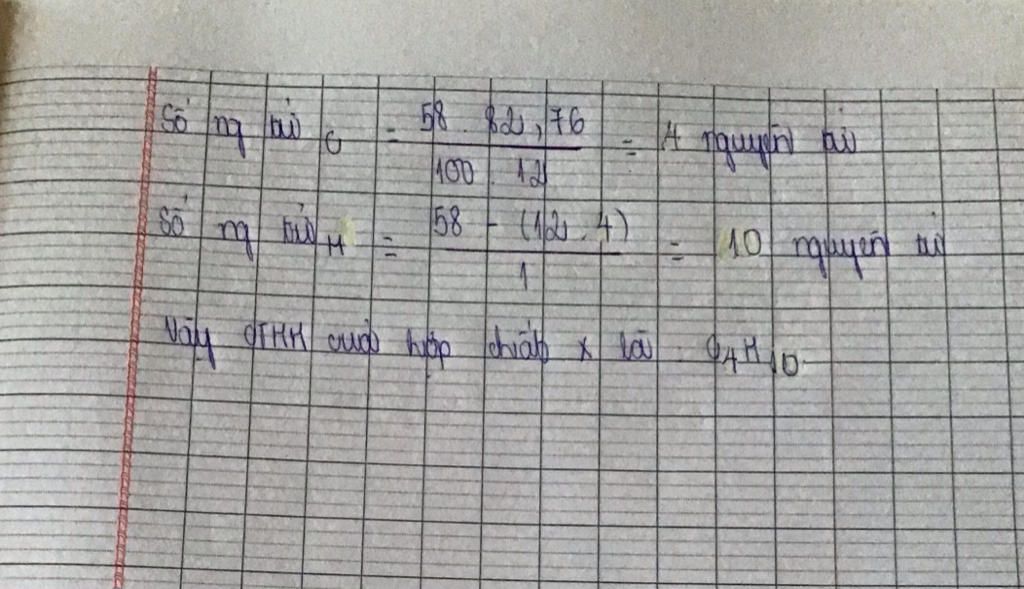 Số ng tử C = 58 . 82,76 / 100 . 12 = 4 nguyên tử
Số ng tử H = 58 - (12 . 4) / 1 = 10 nguyên tử
Vậy CTHH của hợp chất x là C4H10